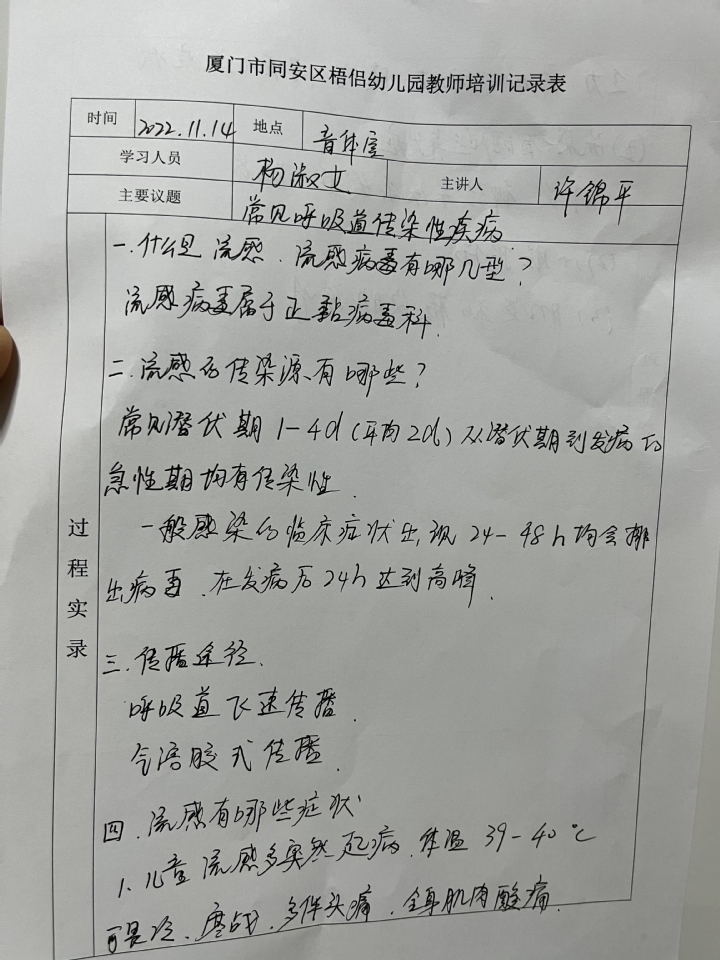 厦门市同安区梧侣幼儿园教师培训记录表
时间 2022.11.14 地点 音体室
学习人员 杨淑女 主讲人 许锦平
主要议题 常见呼吸道传染性疾病
过程实录
一.什么是流感.流感病毒有哪几型?
流感病毒属于正黏病毒科.
二.流感的传染源有哪些?
常见潜伏期1-4d(平均2d)从潜伏期到发病的
急性期均有传染性.
一般感染的临床症状出现24-48h均会排
出病毒.在发病后24h达到高峰.
三.传播途径.
呼吸道飞速传播.
气溶胶式传播.
四.流感有哪些症状
1.儿童流感多突然起病.体温39-40℃
可畏冷、寒战.多伴头痛.全身肌肉酸痛.